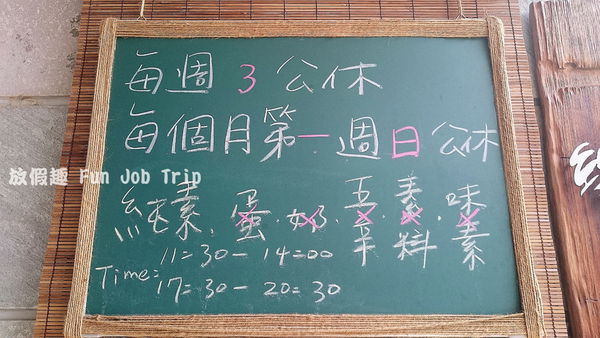 每週3公休
每個月第一週日公休
放假趣 Fun Job Trip
純素.蛋.奶.五辛.素料.味素
Time:
11:30-14:00
17:30-20:30